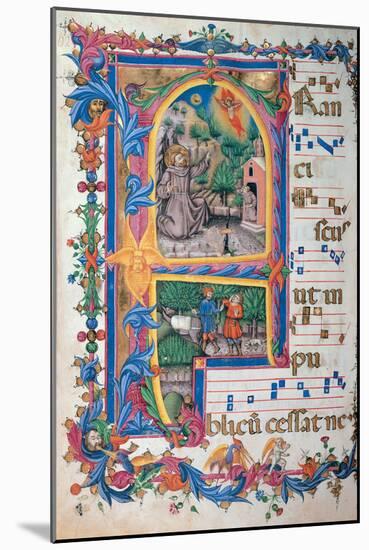 FRan
ci
scus
ut in
pu
blicū cessat ne